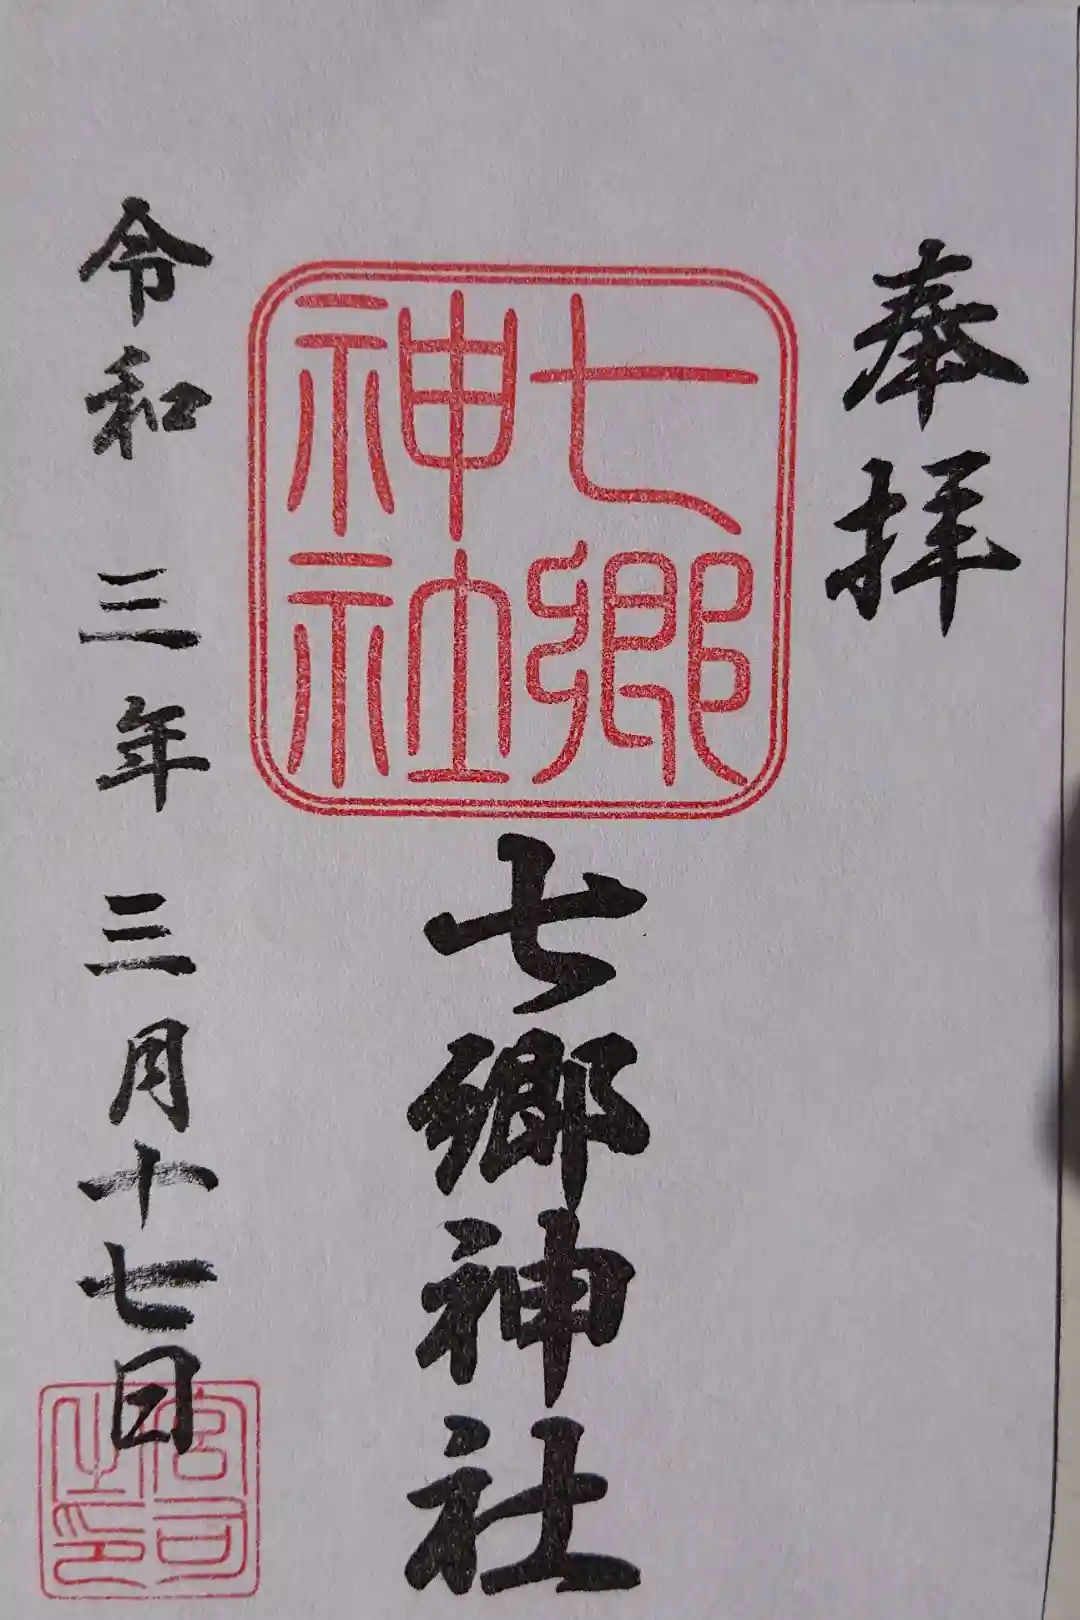 奉拝
七郷
神社
七郷神社
令和三年三月十七日
宮司
之印